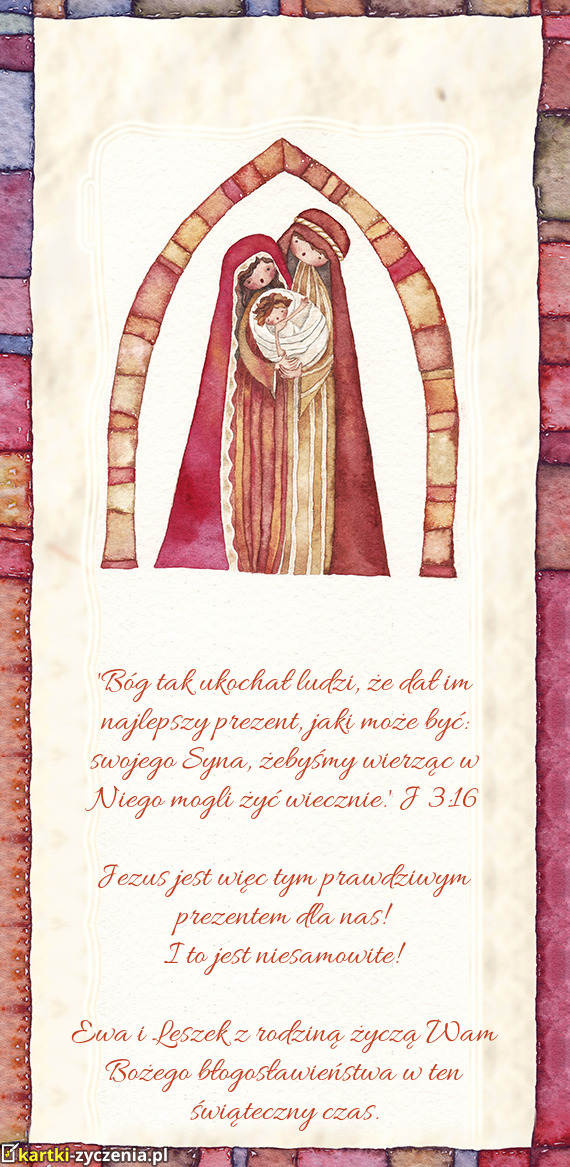 'Bóg tak ukochał ludzi, że dał im
najlepszy prezent, jaki może być:
swojego Syna, żebyśmy wierząc w
Niego mogli żyć wiecznie.' J 3:16
Jezus jest więc tym prawdziwym
prezentem dla nas!
I to jest niesamowite!
Ewa i Leszek z rodziną życzą Wam
Bożego błogosławieństwa w ten
świąteczny czas.
kartki-zyczenia.pl